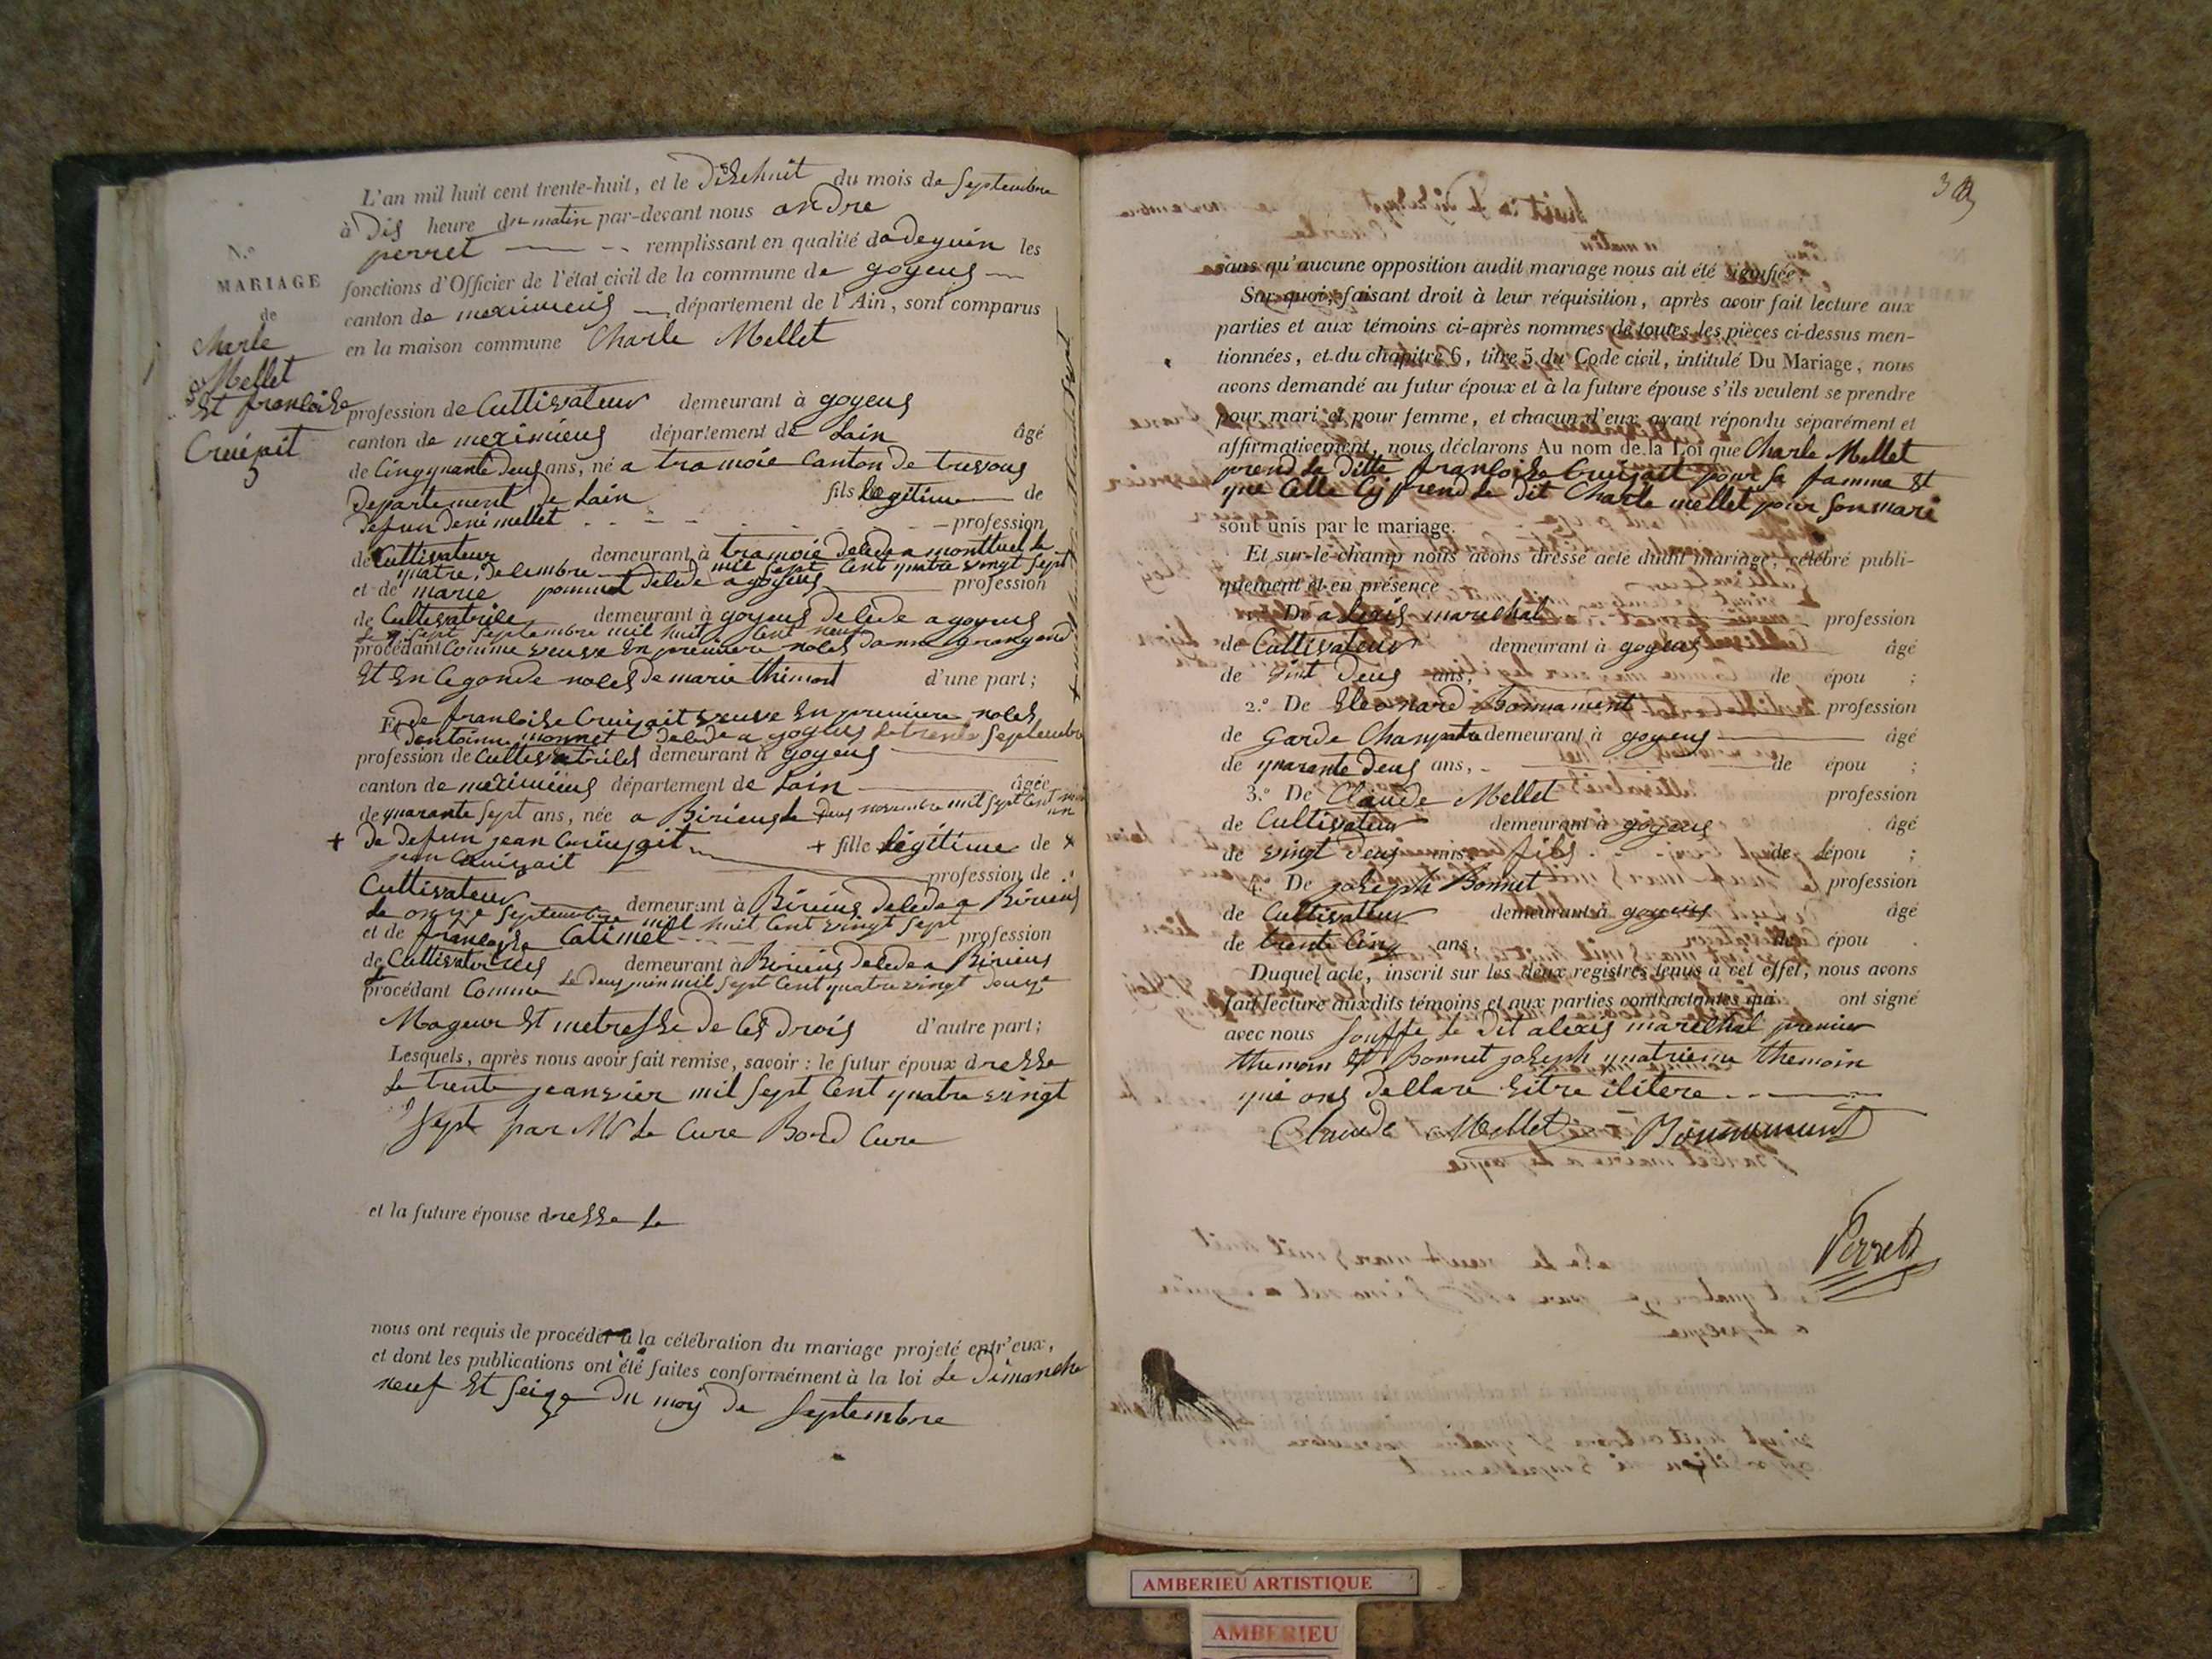 L'an mil huit cent trente-huit, et le Disehuit du mois de Septembre
à Dis heure du matin par-devant nous andre
perret remplissant en qualité dadeguin les
fonctions d'Officier de l'état civil de la commune de goyeus
canton de meximieus département de l'Ain, sont comparus
en la maison commune Charle Mellet
N.º
MARIAGE
de
Charle
Mellet
Et francoise
Cruipit
profession de Cultivateur demeurant à goyeus
canton de meximieus département de Lain âgé
de Cinquante deus ans, né a tramoie Canton de trevous
Departement de Lain fils legitime de
defun deni mellet profession
de Cultivateur demeurant à tramoie delede a montluel le
quatre decembre mil sept Cent quatre vingt sept
et de marie pommet delede a goyeus profession
de Cultivatrice demeurant à goyeus delede a goyeus
le sept Septembre mil huit Cent neuf
procédant Comme veuve En premiere noles
Et En Cegonde noles de marie thimont d'une part;
Et de francoise Cruizait veuve En premiere noles
dantoine monnet delede a goyeus le trente Septembre
profession de Cultivatrices demeurant à goyeus
canton de meximieus département de Lain âgée
de quarante sept ans, née a Birieus le deus novembre mil sept Cent
+ de defun jean Cruizait + fille légitime de +
jean Cruizait profession de
Cultivateur demeurant à Birieus delede a Birieus
Le onze Septembre mil huit Cent vingt sept
et de francoise Catimel profession
de Cultivatrices demeurant à Birieus delede a Birieus
procédant Comme le deus mil sept Cent quatre vingt douze
Mageur Et metresse de Ces Drois d'autre part;
Lesquels, après nous avoir fait remise, savoir: le futur époux dresse
Le trente jeanvier mil sept Cent quatre vingt
sept par Mr Le Cure Bord Cure
et la future épouse dresse Le
nous ont requis de procéder à la célébration du mariage projeté entr'eux,
et dont les publications ont été faites conformément à la loi Le Dimanche
neuf Et seize Du moy De Septembre
sans qu'aucune opposition audit mariage nous ait été signifiée;
Sur quoi, faisant droit à leur réquisition, après avoir fait lecture aux
parties et aux témoins ci-après nommés de toutes les pièces ci-dessus men-
tionnées, et du chapitre 6, titre 5 du Code civil, intitulé Du Mariage, nous
avons demandé au futur époux et à la future épouse s'ils veulent se prendre
pour mari et pour femme, et chacun d'eux ayant répondu séparément et
affirmativement, nous déclarons Au nom de la Loi que Charle Mellet
prend La ditte francoise Cruizait pour Sa famme Et
que Celle Cy prend Le dit Charle mellet pour Son mari
sont unis par le mariage.
Et sur-le-champ nous avons dressé acte dudit mariage, célébré publi-
quement et en présence
De alexis marechal profession
de Cultivateur demeurant à goyeus âgé
de vint Deus ans, de épou ;
2.º De Eleonard Bonnament profession
de Garde Champetre demeurant à goyeus âgé
de quarante Deus ans, de épou ;
3.º De Claude Mellet profession
de Cultivateur demeurant à goyeus âgé
de vingt Deus ans fils de lépou ;
4. De joseph Bonnet profession
de Cultivateur demeurant à goyeus âgé
de trente Cinq ans, de épou .
Duquel acte, inscrit sur les deux registres tenus à cet effet, nous avons
fait lecture auxdits témoins et aux parties contractantes qui ont signé
avec nous souffe Le Dit alexis marechal premier
themoin Et Bonnet joseph quatrieme themoin
qui ons dellare Eitre ilitere
Claude Mellet Bonnamant
Perret
AMBERIEU ARTISTIQUE
AMBERIEU